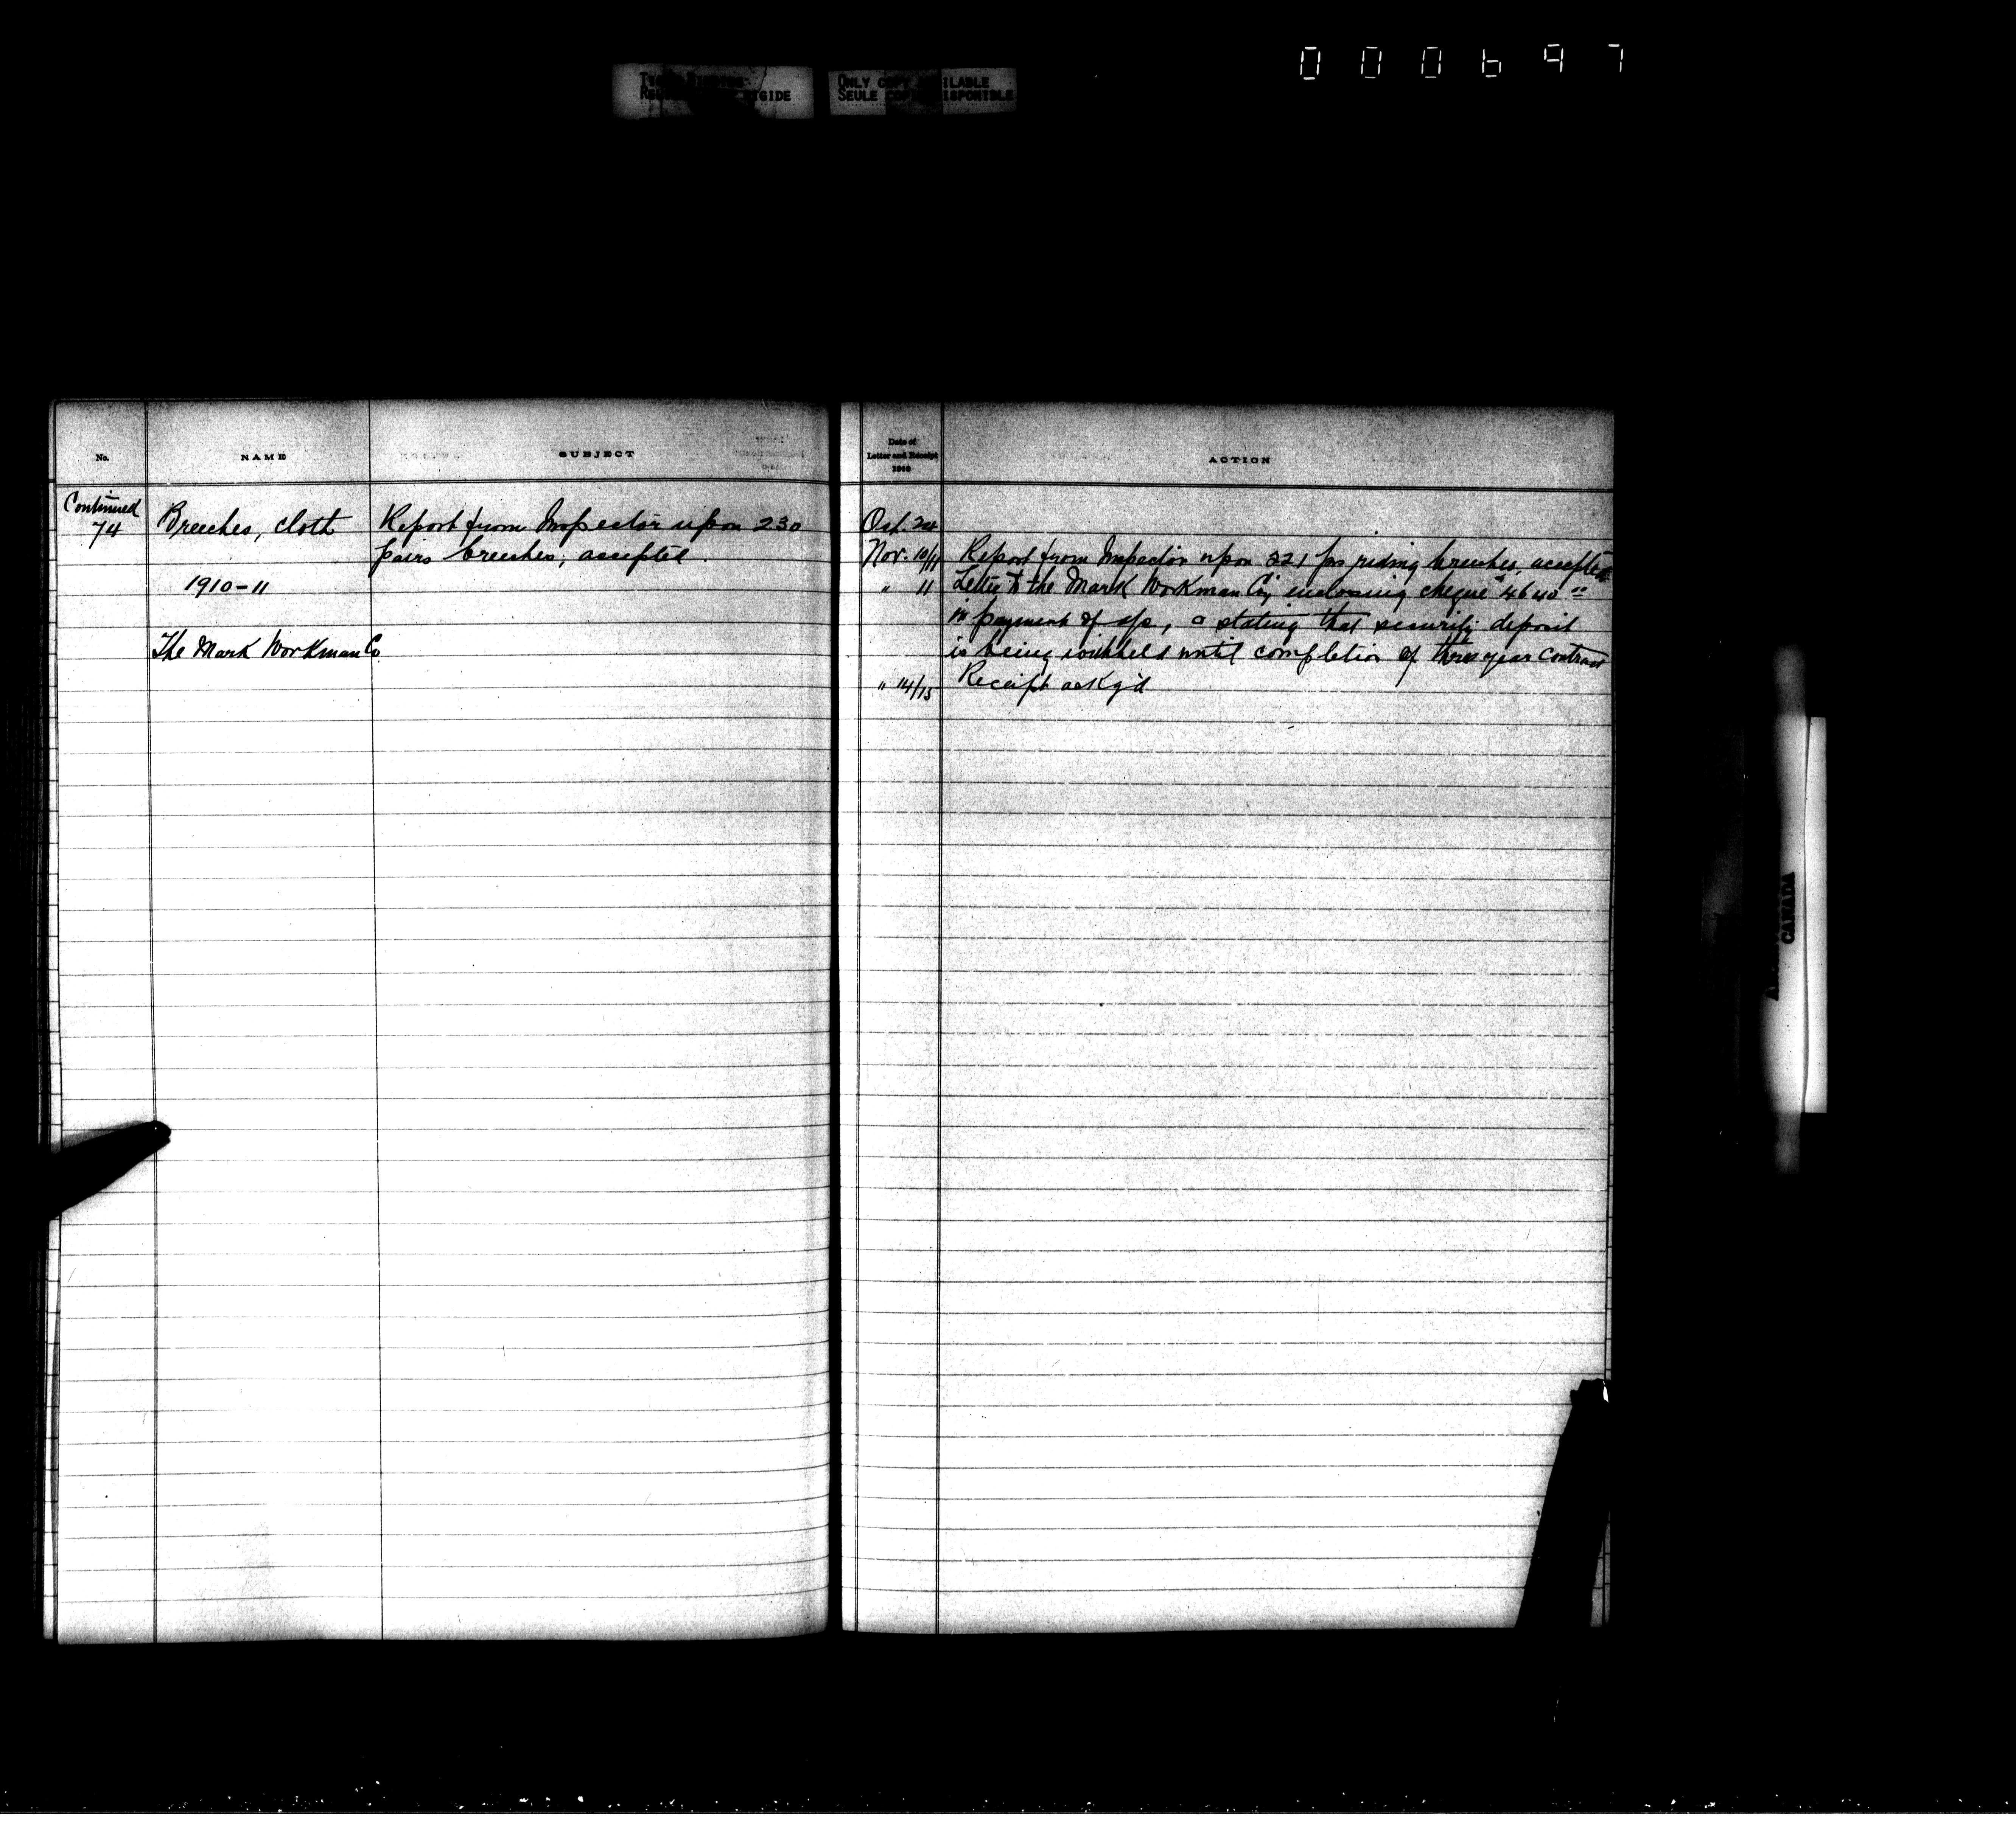 000697
ONLY COPY AVAILABLE
SEULE COPIE DISPONIBLE
No.
NAME
SUBJECT
Continued
74
Breeches, cloth
Report from Inspector upon 230
pairs breeches, accepted.
1910-11
The Mark Workman Co
Date of
Letter and Receipt
1910
ACTION
Oct. 24
Nov. 10/11 Report from Inspector upon 221 prs riding breeches, accepted
" 11 Letter to the Mark Workman Coy enclosing cheque $4640
in payment of a/c, & stating that security deposit
is being withheld until completion of three year contract
" 14/15 Receipt ackg'd
CANADA